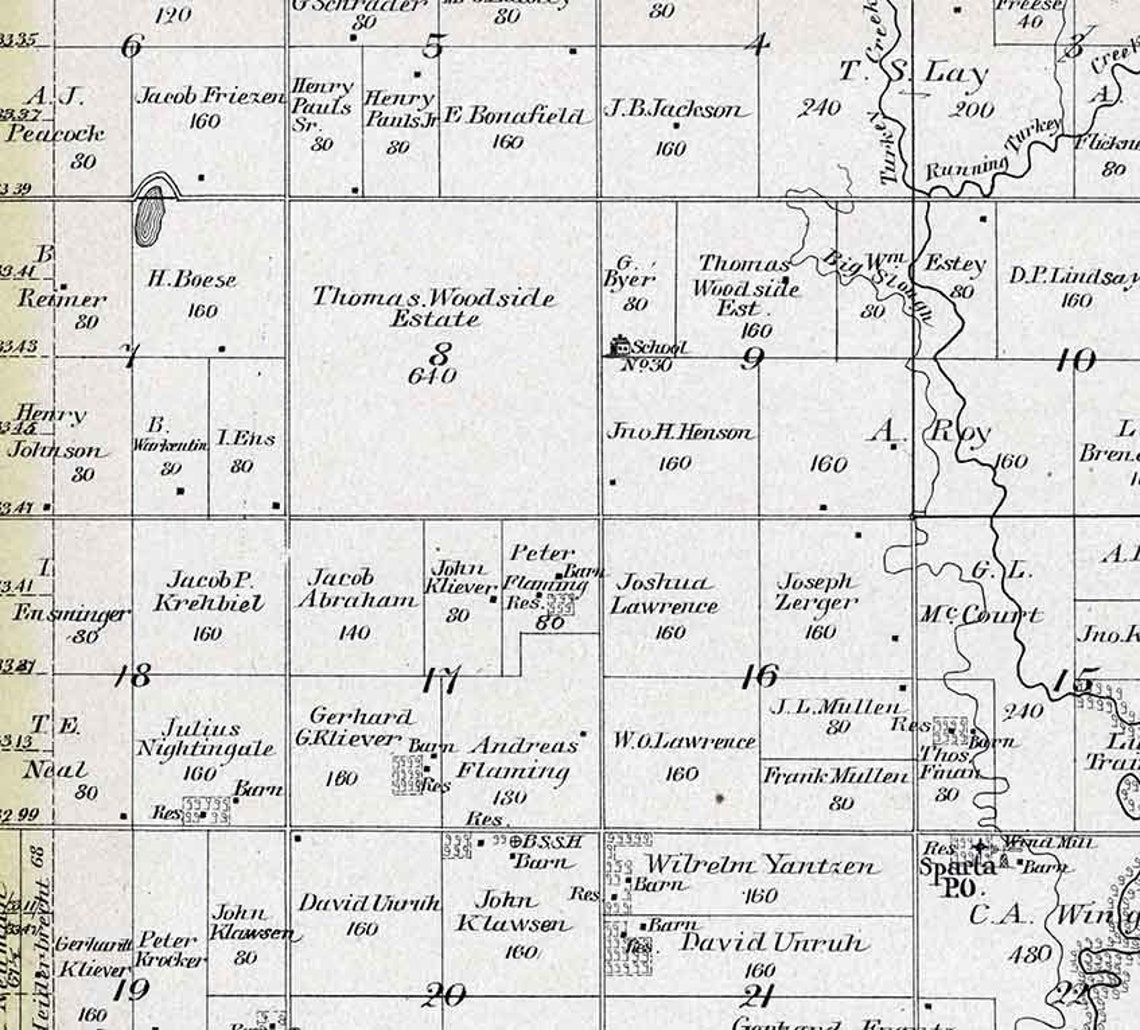 120
G Schrader
80
80
80
Freese
40
33.35
6
5
4
3
A. J.
33.37
Peacock
80
Jacob Friezen
160
Henry
Pauls
Sr.
80
Henry
Pauls Jr
80
E Bonafield
160
J.B.Jackson
160
T. S. Lay
240
200
Turkey Creek
Running Turkey
Creek
A.
Flickn
80
33.39
B
33.41
Reimer
80
H. Boese
160
Thomas. Woodside
Estate
8
640
G.
Byer
80
Thomas
Woodside
Est.
160
Big Slough
Wm Estey
80
80
D.P. Lindsay
160
School
No 30
33.43
7
9
10
Henry
Johnson
80
B.
Warkentin
80
I. Ens
80
Jno.H.Henson
160
160
A. Roy
160
L
Bren
33.47
I.
33.41
Ensminger
80
Jacob P.
Krehbiel
160
Jacob
Abraham
140
John
Kliever
80
Peter
Flaming
Barn
Res.
80
Joshua
Lawrence
160
Joseph
Zerger
160
G. L.
McCourt
A.
Jno.K
18
17
16
15
T E.
33.13
Neal
80
Julius
Nightingale
160
Barn
Res
Gerhard
G.Kliever
160
Barn
Res
Andreas
Flaming
180
Res.
W.O.Lawrence
160
J.L.Mullen
80
Frank Mullen
80
Res
Barn
Thos.
Fman
80
240
Lu
Train
32.99
68
Gerhardt
Kliever
160
Peter
Krocker
John
Klawsen
80
David Unruh
160
B.S.S.H
Barn
John
Klawsen
160
Wilrelm Yantzen
160
Res.
Barn
Barn
Res.
David Unruh
160
Res
Wind Mill
Barn
Sparta
P.O.
C.A. Wing
480
19
20
21
22